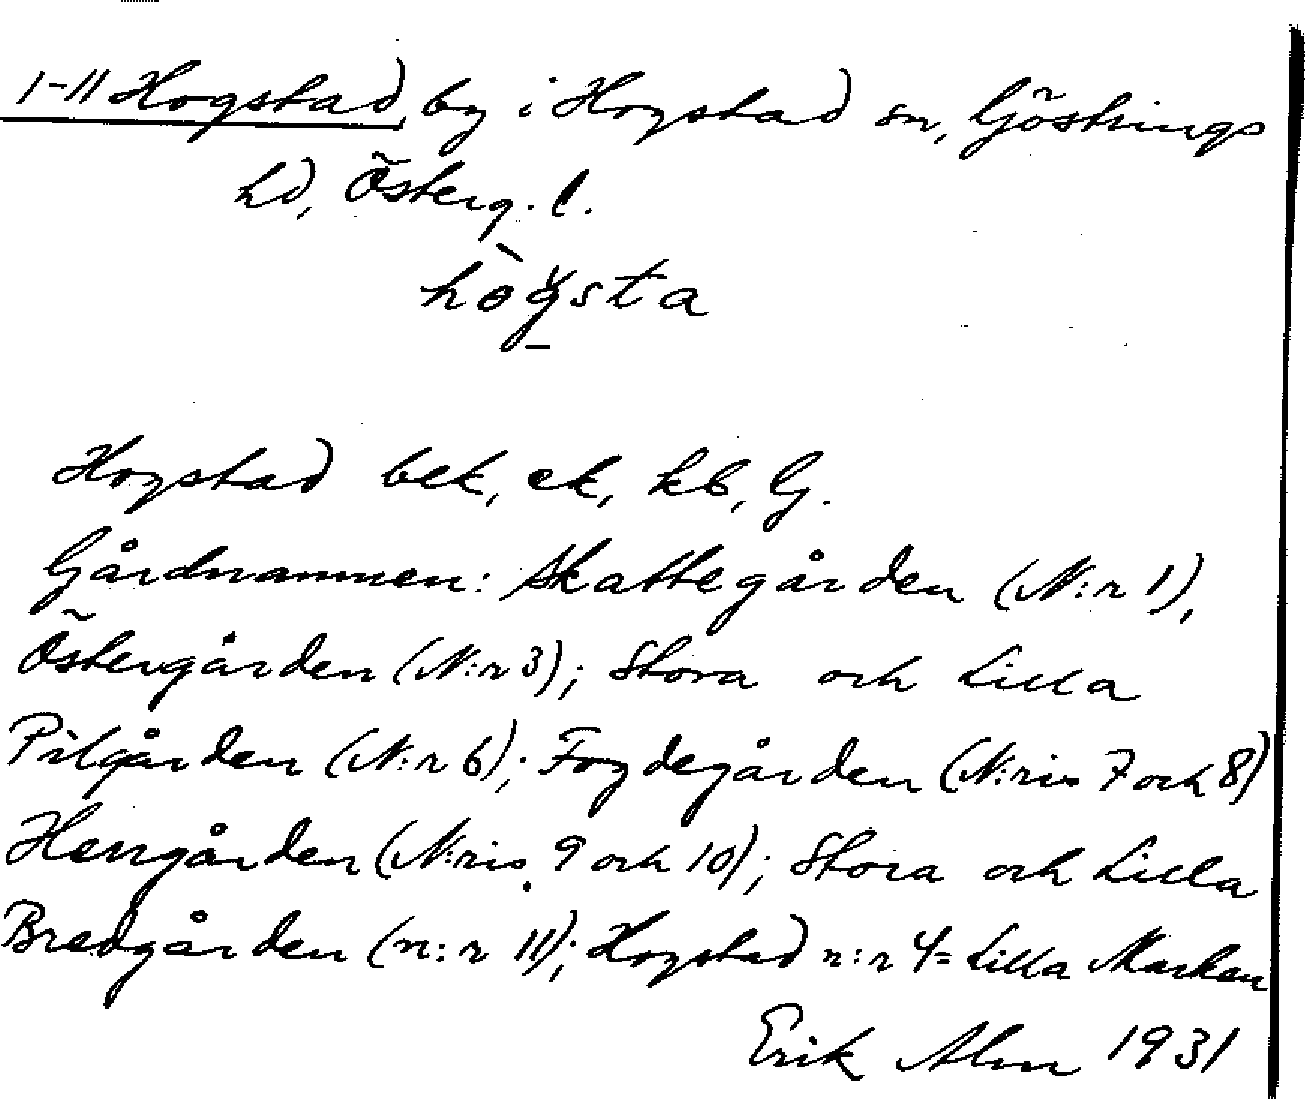 1-11 Hogstad, by i Hogstad sn, Göstrings
hd, Österg. l.
hògsta
Hogstad bek, ek, kb, G.
Gårdnamnen: Skattegården (N:r 1),
Östergården (N:r 3); Stora och Lilla
Pilgården (N:r 6); Fogdegården (N:ris 7 och 8)
Herrgården (N:ris 9 och 10); Stora och Lilla
Bredgården (n:r 11); Hogstad n:r 4 = Lilla Marken
Erik Alm 1931